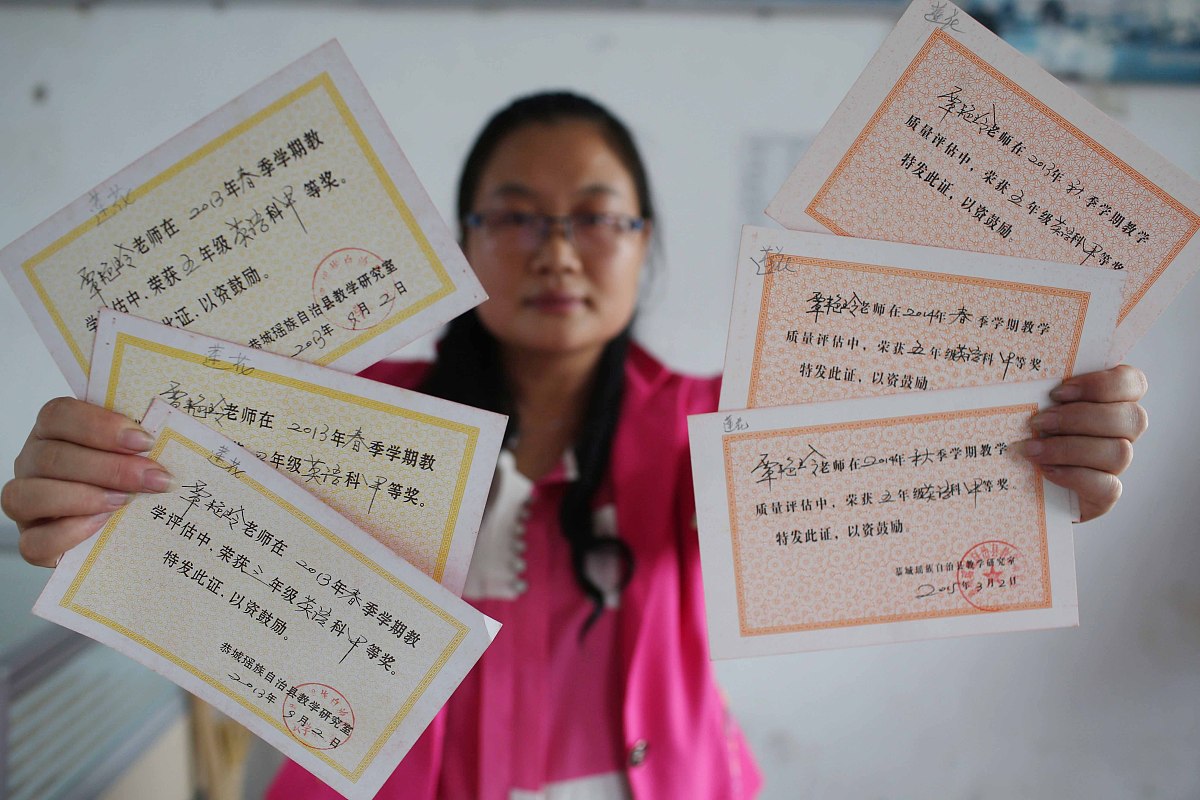 莲花
老师在 2013年春季学期教
学评估中，荣获五年级英语科甲等奖。
此证，以资鼓励。
恭城瑶族自治县教学研究室
2013年9月2日
莲花
老师在 2013年春季学期教
年级英语科甲等奖。
莲花
老师在 2013年春季学期教
学评估中，荣获三年级英语科甲等奖。
特发此证，以资鼓励。
恭城瑶族自治县教学研究室
2013年9月2日
莲花
老师在2013年秋季学期教学
质量评估中，荣获五年级英语科甲等奖
特发此证，以资鼓励。
莲花
老师在2014年春季学期教学
质量评估中，荣获五年级英语科甲等奖
特发此证，以资鼓励
莲花
老师在2014年秋季学期教学
质量评估中，荣获五年级英语科甲等奖。
特发此证，以资鼓励
恭城瑶族自治县教学研究室
2015年3月2日